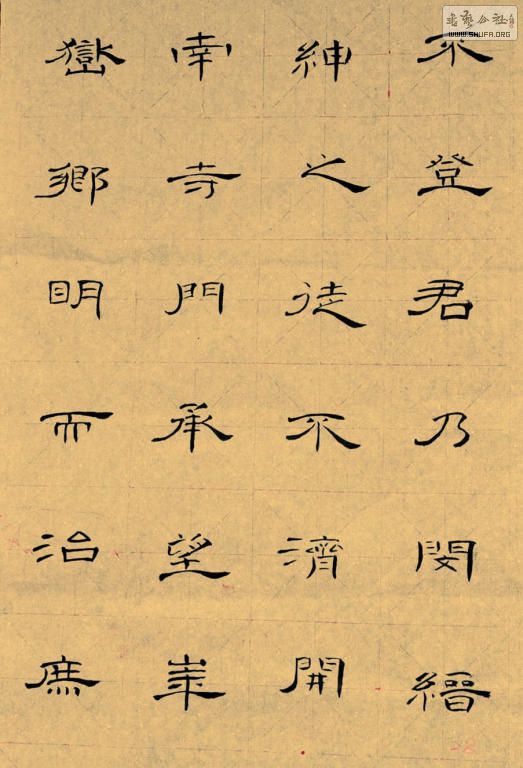 不登君乃閔縉
紳之徒不濟開
南寺門承望崋
嶽鄉眀而治庶
書藝公社
WWW.SHUFA.ORG